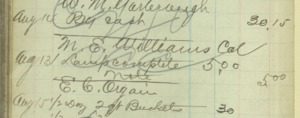 W. M. Yarberough
Aug 12 By cash 30.15
M. E. Williams Cal
Aug 13 Lamp complete 5,00
Note 5 00
E. C. Organ
Aug 15 2 qt Buckets 30